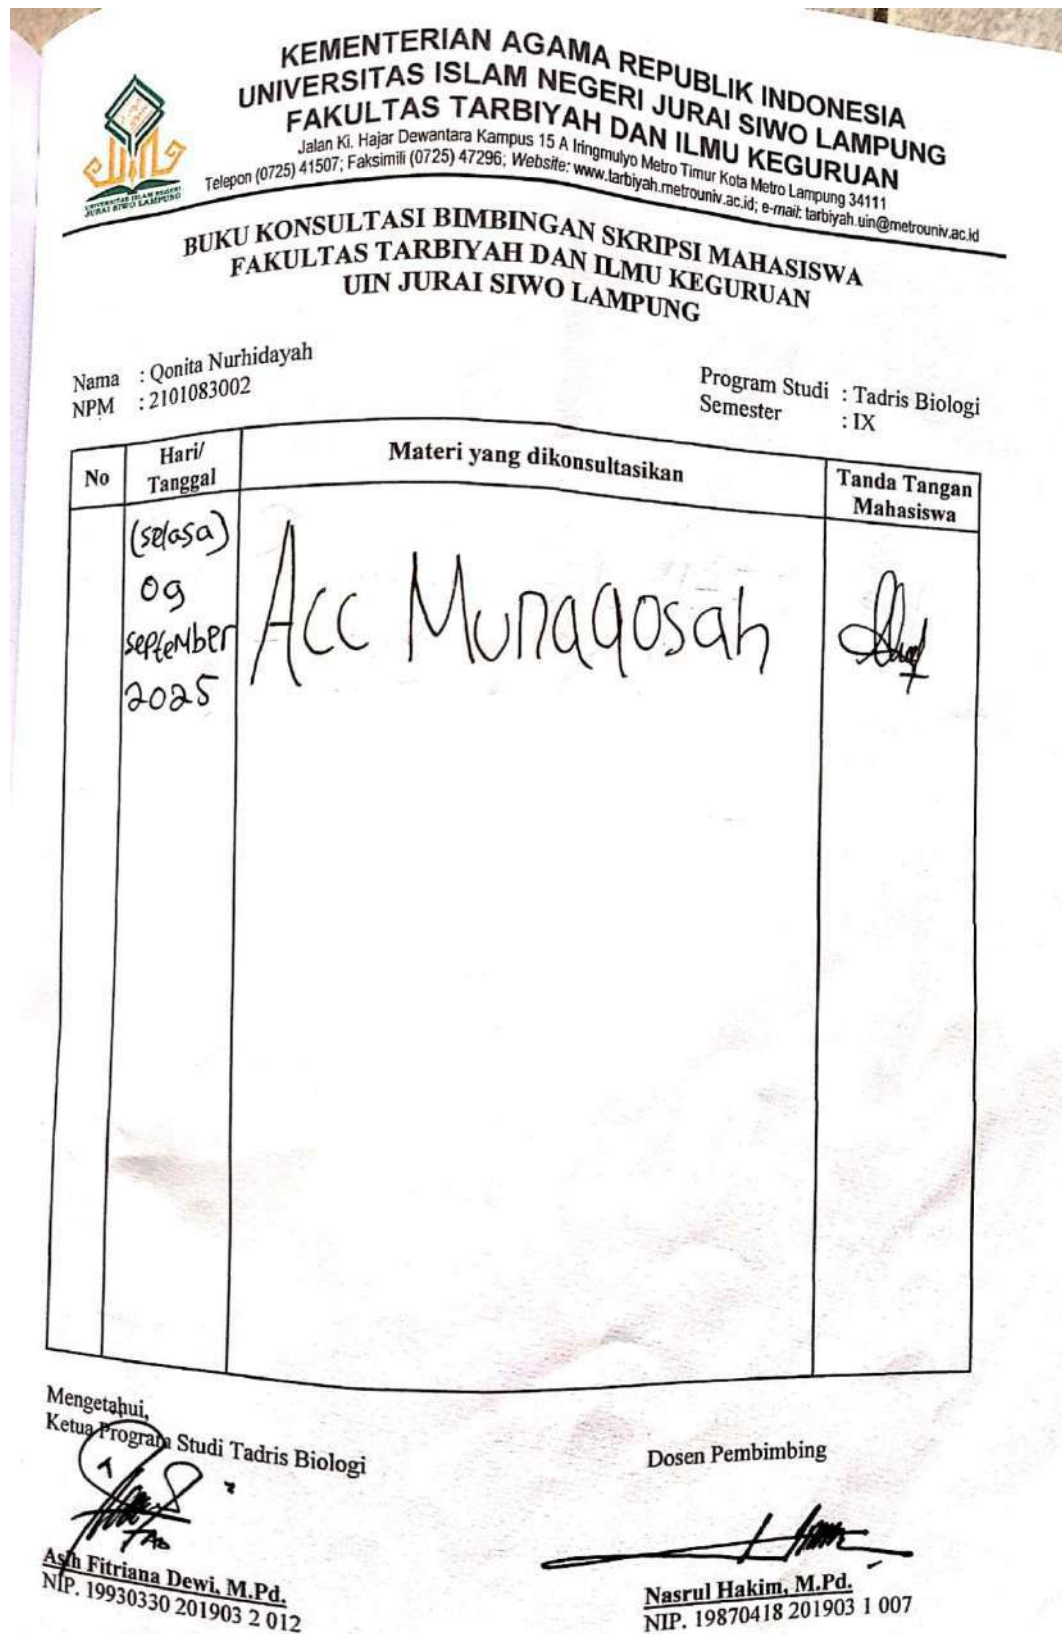 KEMENTERIAN AGAMA REPUBLIK INDONESIA
UNIVERSITAS ISLAM NEGERI JURAI SIWO LAMPUNG
FAKULTAS TARBIYAH DAN ILMU KEGURUAN
Jalan Ki. Hajar Dewantara Kampus 15 A Iringmulyo Metro Timur Kota Metro Lampung 34111
Telepon (0725) 41507; Faksimili (0725) 47296; Website: www.tarbiyah.metrouniv.ac.id; e-mail: tarbiyah.uin@metrouniv.ac.id
UNIVERSITAS ISLAM NEGERI
JURAI SIWO LAMPUNG
BUKU KONSULTASI BIMBINGAN SKRIPSI MAHASISWA
FAKULTAS TARBIYAH DAN ILMU KEGURUAN
UIN JURAI SIWO LAMPUNG
Nama : Qonita Nurhidayah
NPM : 2101083002
Program Studi : Tadris Biologi
Semester : IX
No
Hari/
Tanggal
Materi yang dikonsultasikan
Tanda Tangan
Mahasiswa
(selasa)
09
September
2025
Acc Munaqosah
Mengetahui,
Ketua Program Studi Tadris Biologi
Asih Fitriana Dewi, M.Pd.
NIP. 19930330 201903 2 012
Dosen Pembimbing
Nasrul Hakim, M.Pd.
NIP. 19870418 201903 1 007